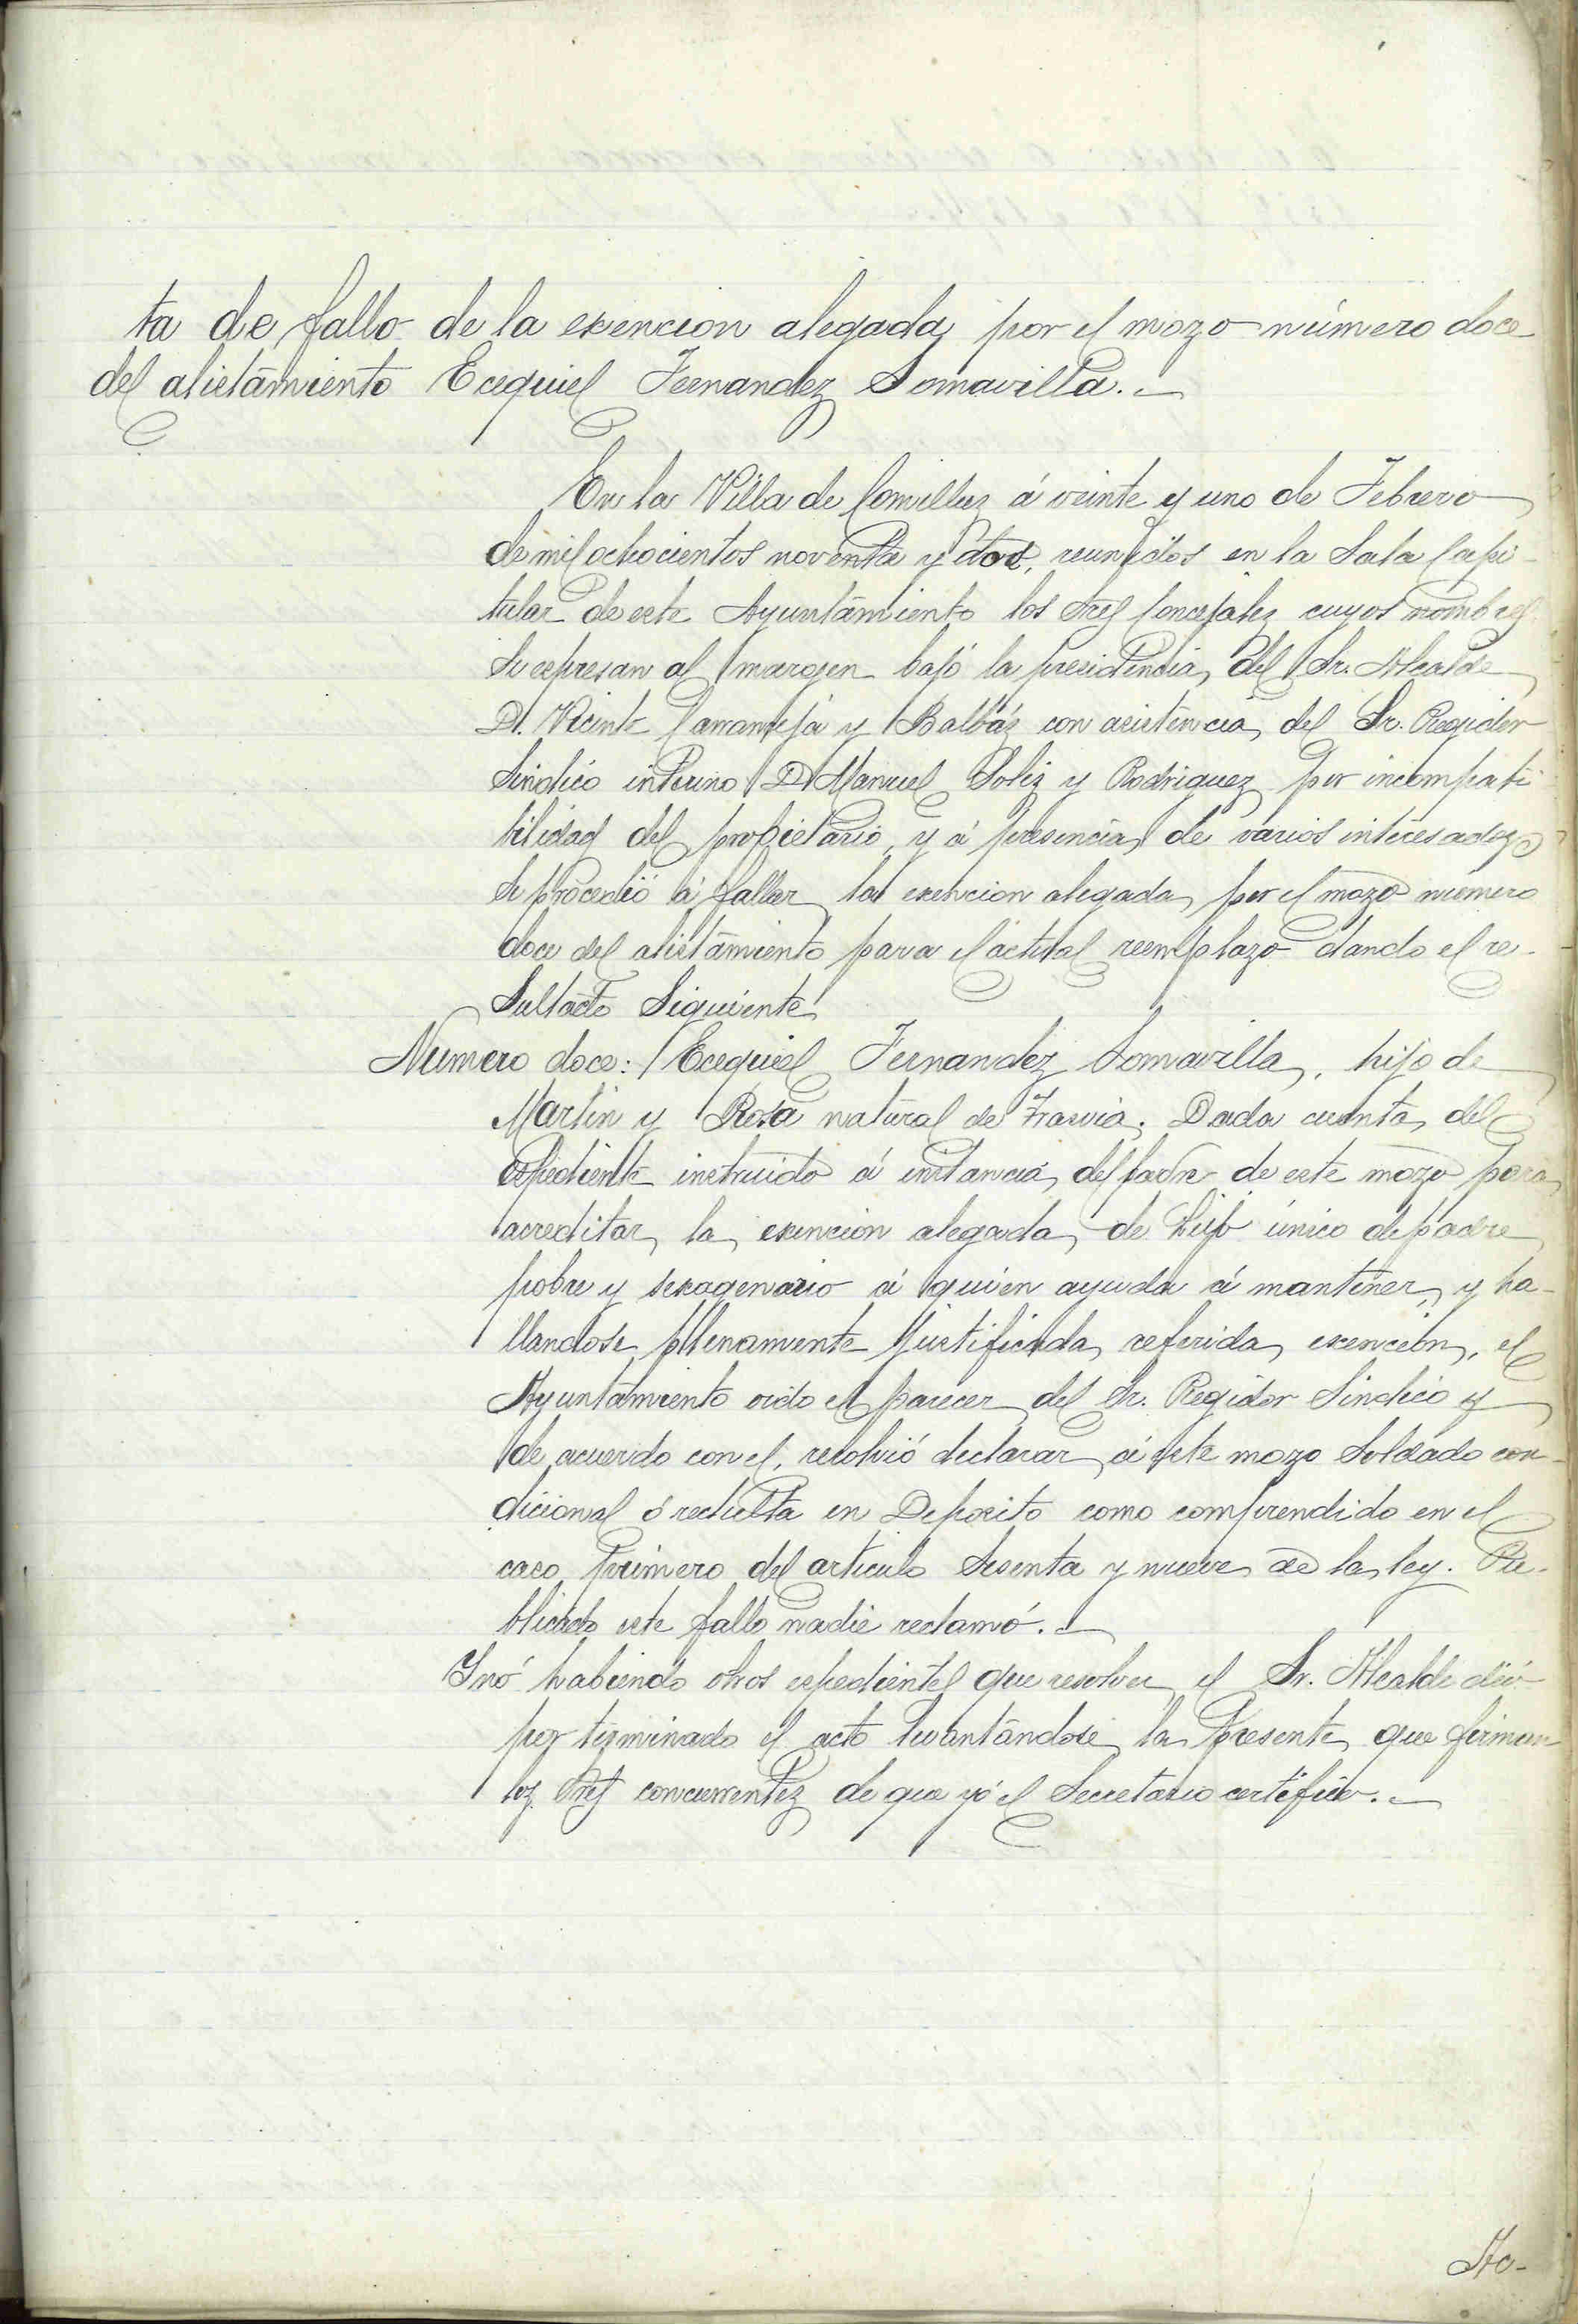 ta de fallo de la exencion alegada por el mozo número doce
del alistamiento Ecequiel Fernandez Somavilla.
En la Villa de Comillas á veinte y uno de Febrero
de mil ochocientos noventa y dos, reunidos en la Sala Capi-
tular de este Ayuntamiento los Sres Concejales cuyos nombres
se espresan al margen bajo la presidencia del Sr. Alcalde
D. Vicente y Balbás con asistencia del Sr. Regidor
Sindico interino D Manuel Soliz y Rodriguez por incompati
bilidad del propietario, y á presencia de varios interesados
se procedió á fallar la exencion alegada por el mozo número
doce del alistamiento para el actual reemplazo dando el re-
sultado siguiente
Numero doce: Ecequiel Fernandez Somavilla, hijo de
Martin y Rosa natural de Trasvia. Dada cuenta del
espediente instruido á instancia del padre de este mozo para
acreditar la exencion alegada de hijo único de padre
pobre y sexagenario á quien ayuda á mantener, y ha-
llandose plenamente justificada referida exención, el
Ayuntamiento oido el parecer del Sr. Regidor Sindico y
de acuerdo con el, resolvió declarar á este mozo Soldado con-
dicional ó recluta en Deposito como comprendido en el
caso primero del articulo sesenta y nueve de la ley. Pu-
blicado este fallo nadie reclamó.
Y nó habiendo otros espedientes que resolver el Sr. Alcalde dió
por terminado el acto levantándose la presente que firman
los Sres concurrentes de que yó el Secretario certifico.